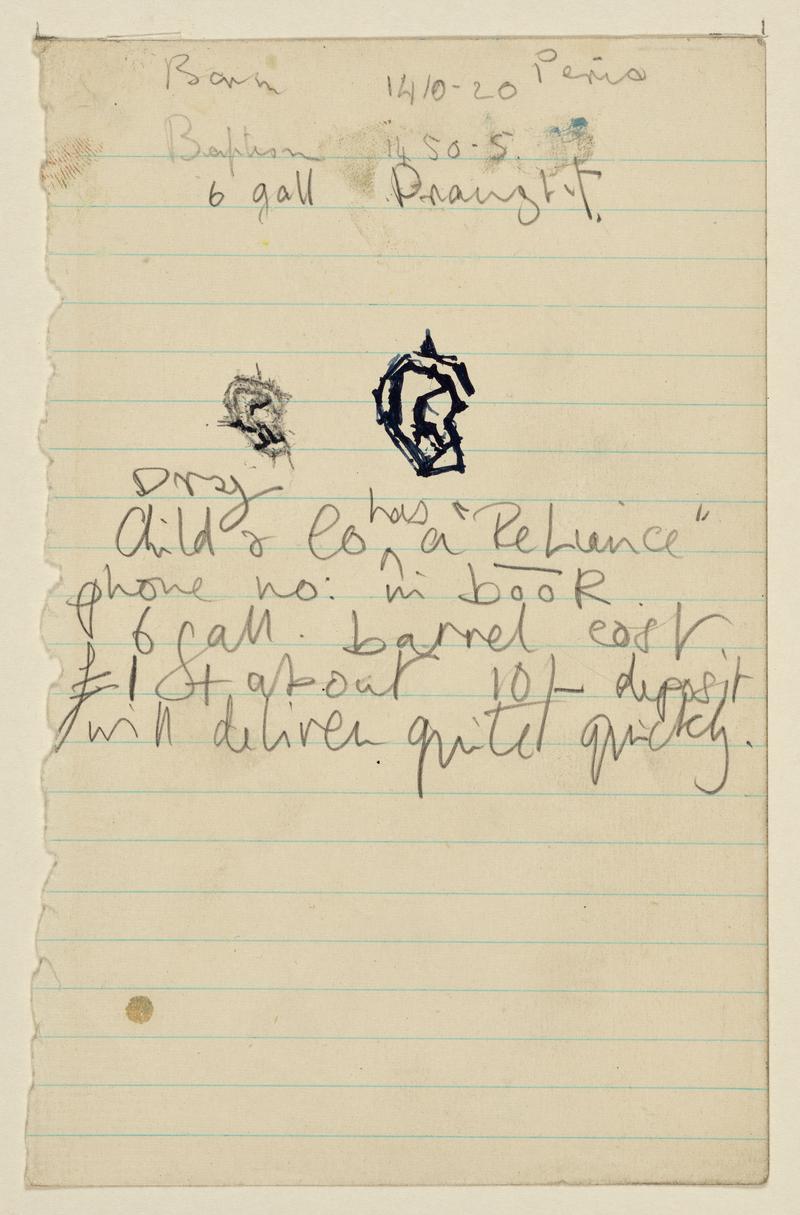 Born 1410-20
Baptism 1450-5.
6 gall Draught.
Dry
Child & Co has a "Reliance"
phone no: in book.
6 gall. barrel cost.
£1 & about 10/- deposit
will deliver quite quickly.